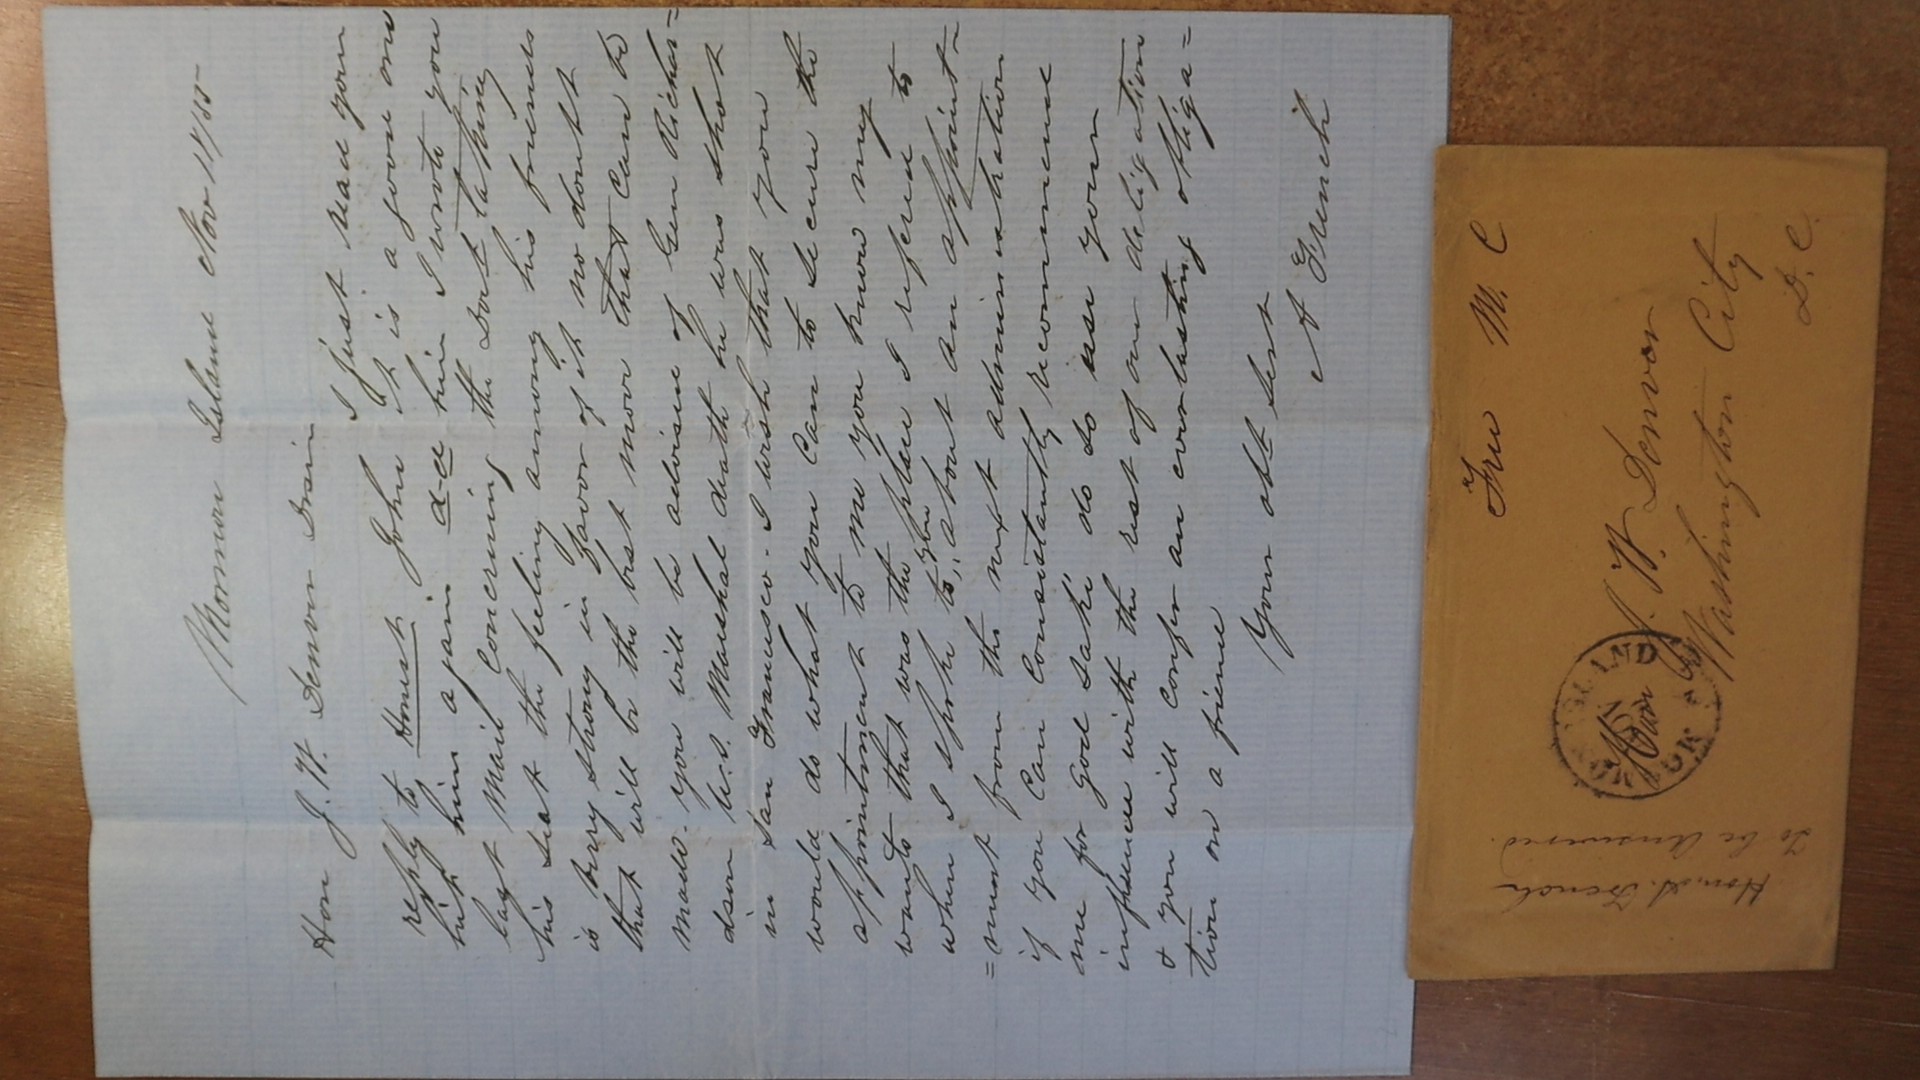 Mormon Island Nov 19/55
Hon J. W. Denver Dr Sir
I just read your
reply to Honest John It is a good one
hit him again and him I wrote you
last Mail concerning the Douts taking
his seat the feeling among his friends
is verry strong in favor of it no doubt
that will be the best move that can be
made. you will be advised of Gen Richar=
dson U.S. Marshal death he was shot
in San Francisco. I wish that you
would do what you can to secure the
appointment to me you know my
wants that was the place I refered to
when I spoke to you about an appoint=
=ment from the next administration
if you can consistantly recommend
me for God sake do so use your
influence with the rest of our deligation
& you will confer an everlasting obliga=
tion on a friend
Your obt Servt
A French
Free M. C
J. W. Denver
Washington City
D. C.
MORMON ISLAND
Nov
Hon. A. French
To be Answered.